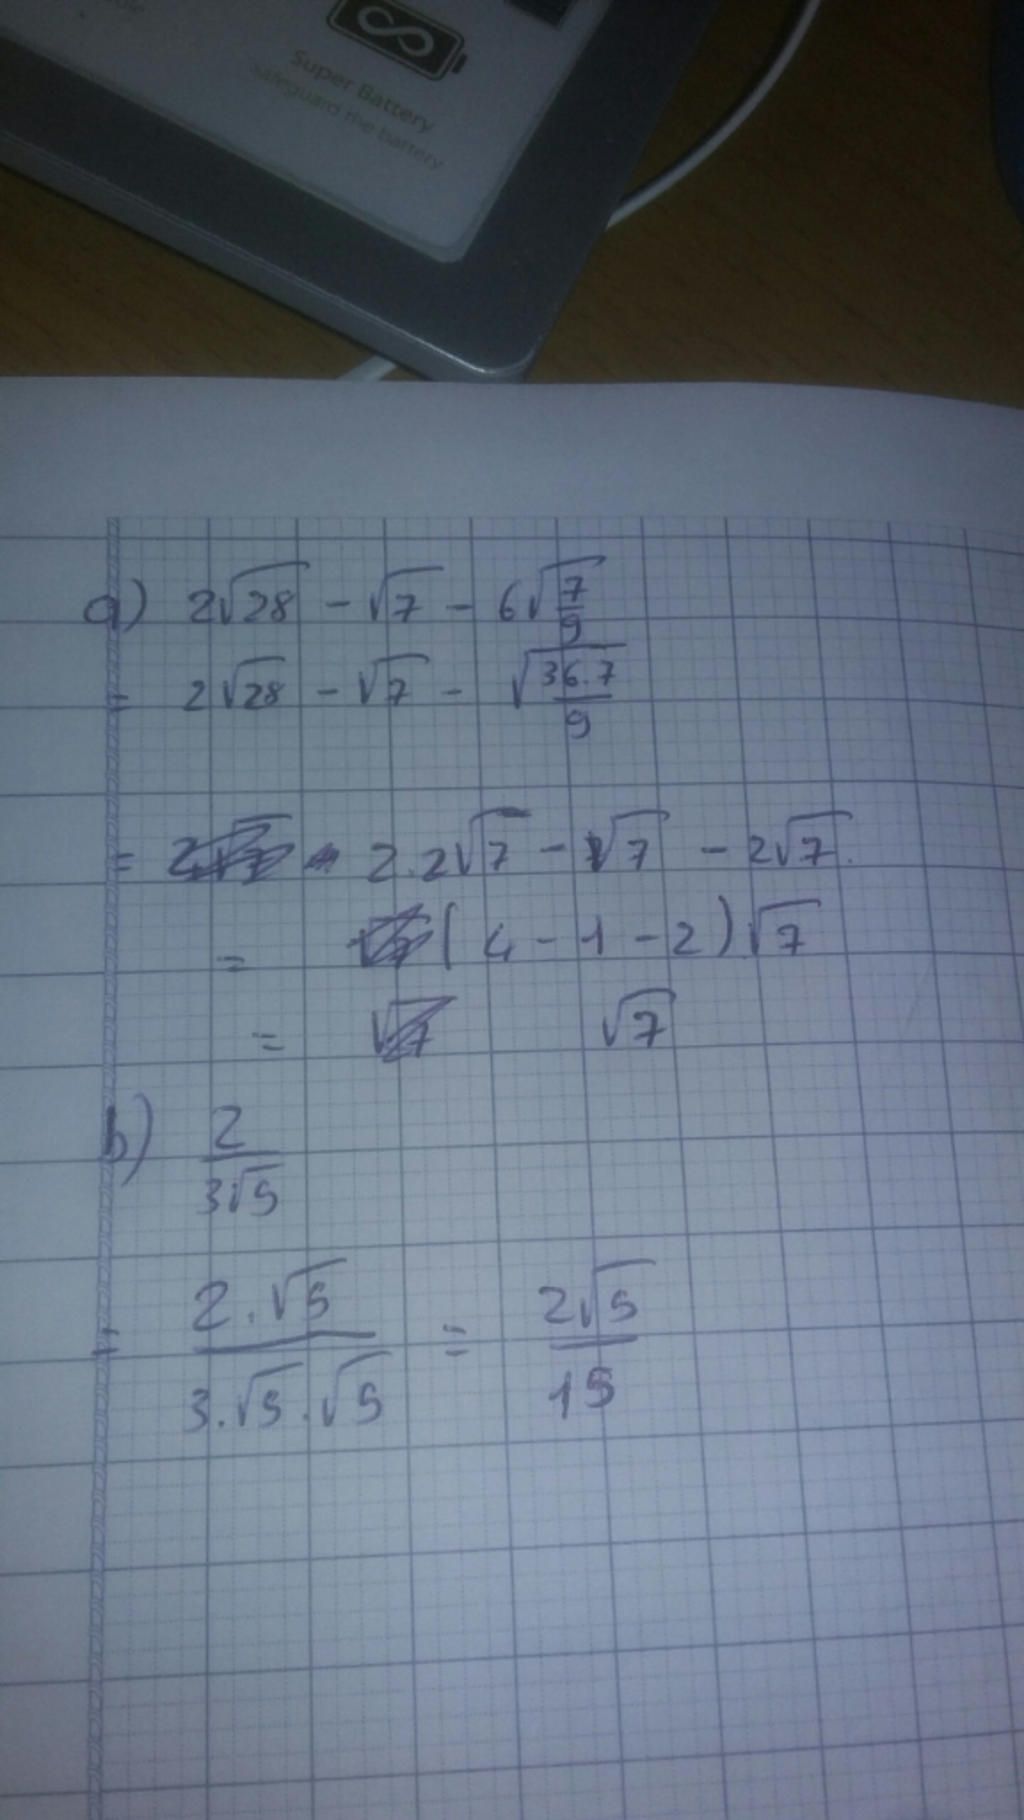 Super Battery
safeguard the battery
a) 2√28 - √7 - 6√(7/9)
= 2√28 - √7 - √(36.7/9)
= 2.2√7 - √7 - 2√7.
= (4 - 1 - 2)√7
= √7
b) 2/(3√5)
= (2.√5)/(3.√5.√5) = (2√5)/15